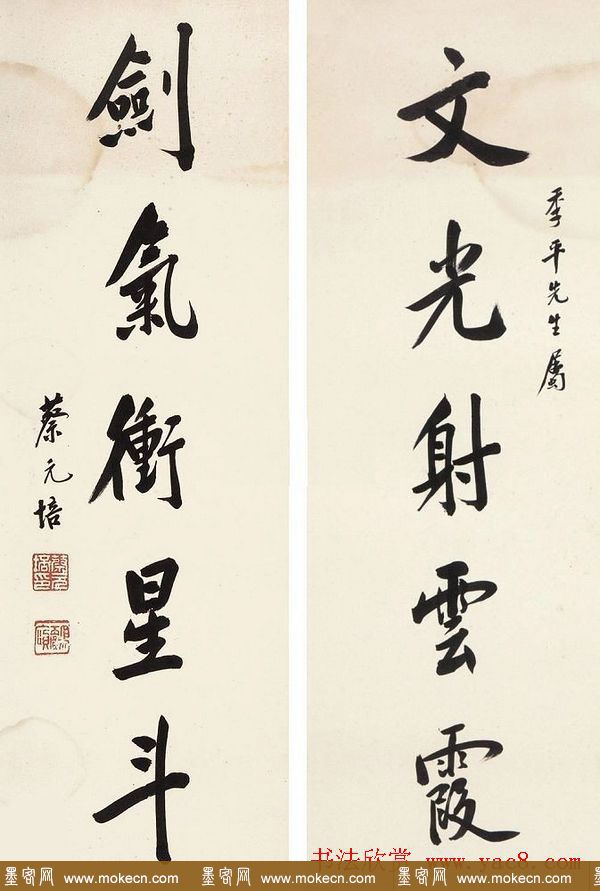 文光射雲霞
季平先生屬
劍氣衝星斗
蔡元培
蔡元培印
书法欣赏 www.yac8.com
墨客网 www.mokecn.com 墨客网 www.mokecn.com 墨客网 www.mokecn.com